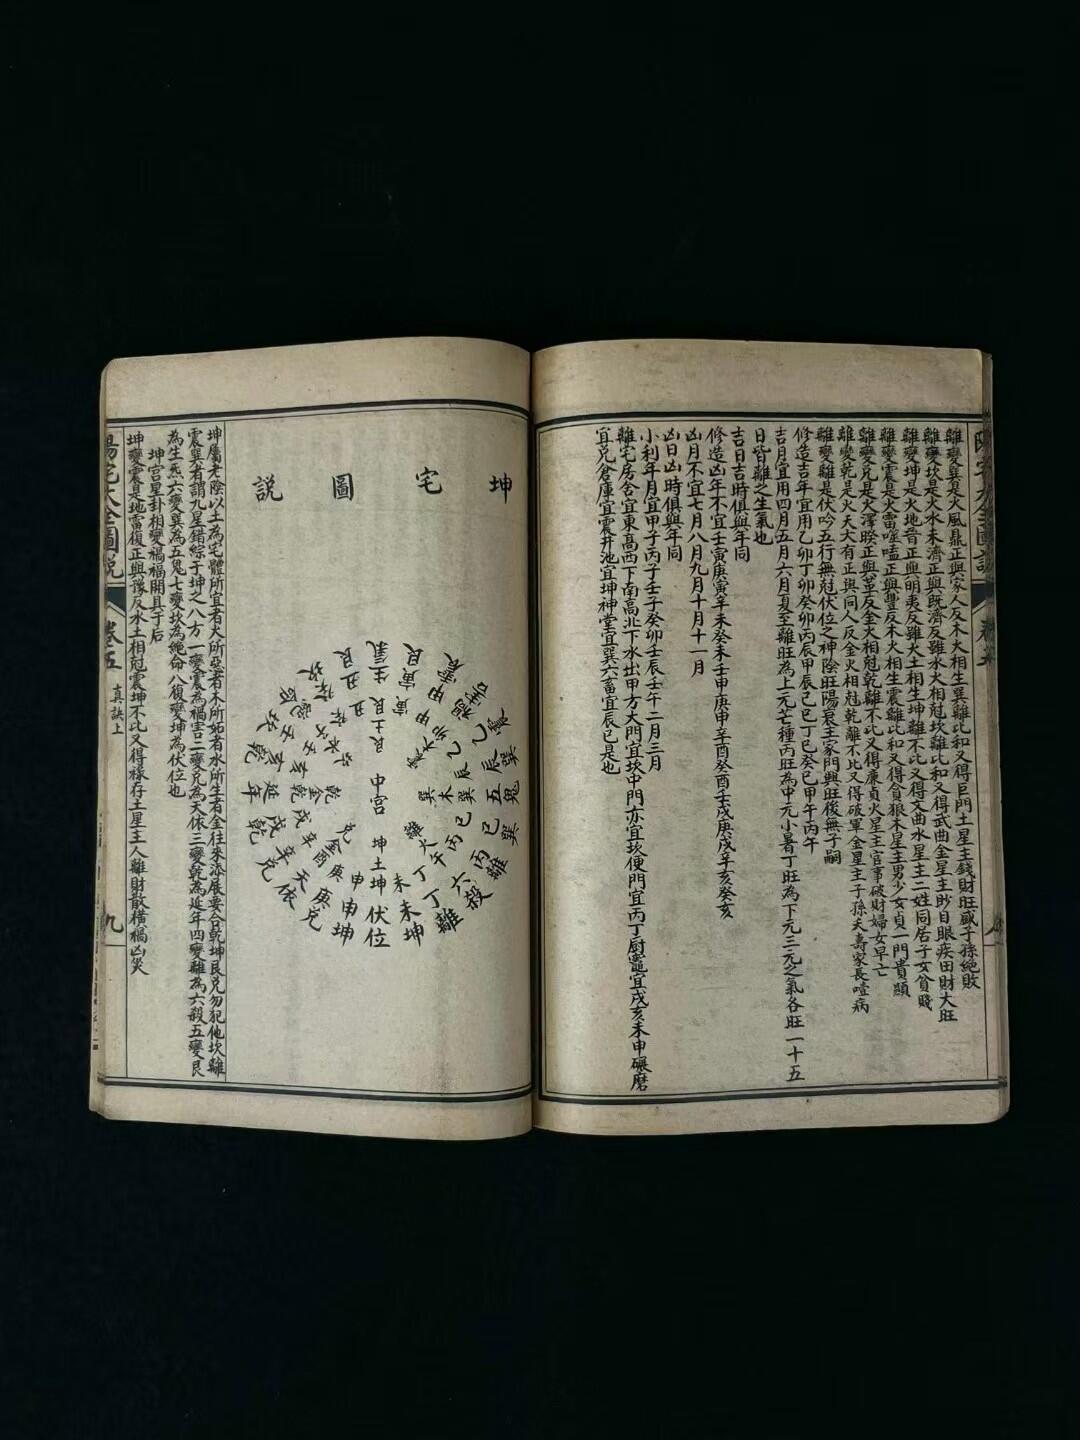 離變巽是火風鼎正與家人反木火相生巽離比和又得巨門土星主錢財旺盛子孫絕敗
離變坎是火水未濟正與既濟反雖水火相尅坎離比和又得武曲金星主眇目眼疾田財大旺
離變坤是火地晋正與明夷反雖火土相生坤離不比又得文曲水星主二姓同居子女貧賤
離變震是火雷噬嗑正與豐反木火相生震離比和又得貪狼木星主男少女貞一門貴顯
離變兑是火澤睽正與革反金火相尅兑離不比又得廉貞火星主官事破財婦女早亡
離變乾是火天大有正與同人反金火相尅乾離不比又得破軍金星主子孫夭壽家長噎病
離變離是伏吟五行無尅伏位之神陰旺陽衰主家門興旺後無子嗣
修造吉年宜用乙卯丁卯癸卯丙辰甲辰己巳丁巳癸巳甲午丙午
吉月宜用四月五月六月夏至離旺為上元芒種丙旺為中元小暑丁旺為下元三元之氣各旺一十五
日皆離之生氣也
吉日吉時俱與年同
修造凶年不宜壬寅庚寅辛未癸未壬申庚申辛酉癸酉壬戌庚戌辛亥癸亥
凶月不宜七月八月九月十月十一月
凶日凶時俱與年同
小利年月宜甲子丙子壬子癸卯壬辰壬午二月三月
離宅房舍宜東高西下南高北下水出甲方大門宜坎中門亦宜坎便門宜丙丁厨竈宜戌亥未申碾磨
宜兑倉庫宜震井池宜坤神堂宜巽六畜宜辰巳是也
坤宅圖說
中宮
坤土坤伏位
未未坤
申申坤
離火丁丁離
午丙六殺
巳丙離
巽木巽五鬼
辰辰巽
巳巳巽
震木卯甲禍害
乙乙震
甲甲震
艮土艮生氣
寅寅艮
丑丑艮
乾金乾延年
亥亥乾
戌戌乾
兑金酉天依
辛辛兑
庚庚兑
坤屬老陰以土為宅體所宜者火所惡者木所妬者水所生者金往來添展要合乾坤艮兑勿犯他坎離
震巽者謂九星錯綜于坤之八方一變震為禍害二變兑為天依三變乾為延年四變離為六殺五變艮
為生炁六變巽為五鬼七變坎為絕命八復變坤為伏位也
坤宮星卦相變禍福開具于后
坤變震是地雷復正與豫反木土相尅震坤不比又得祿存土星主人離財散橫禍凶災
陽宅大全圖說
卷五
真訣上
九